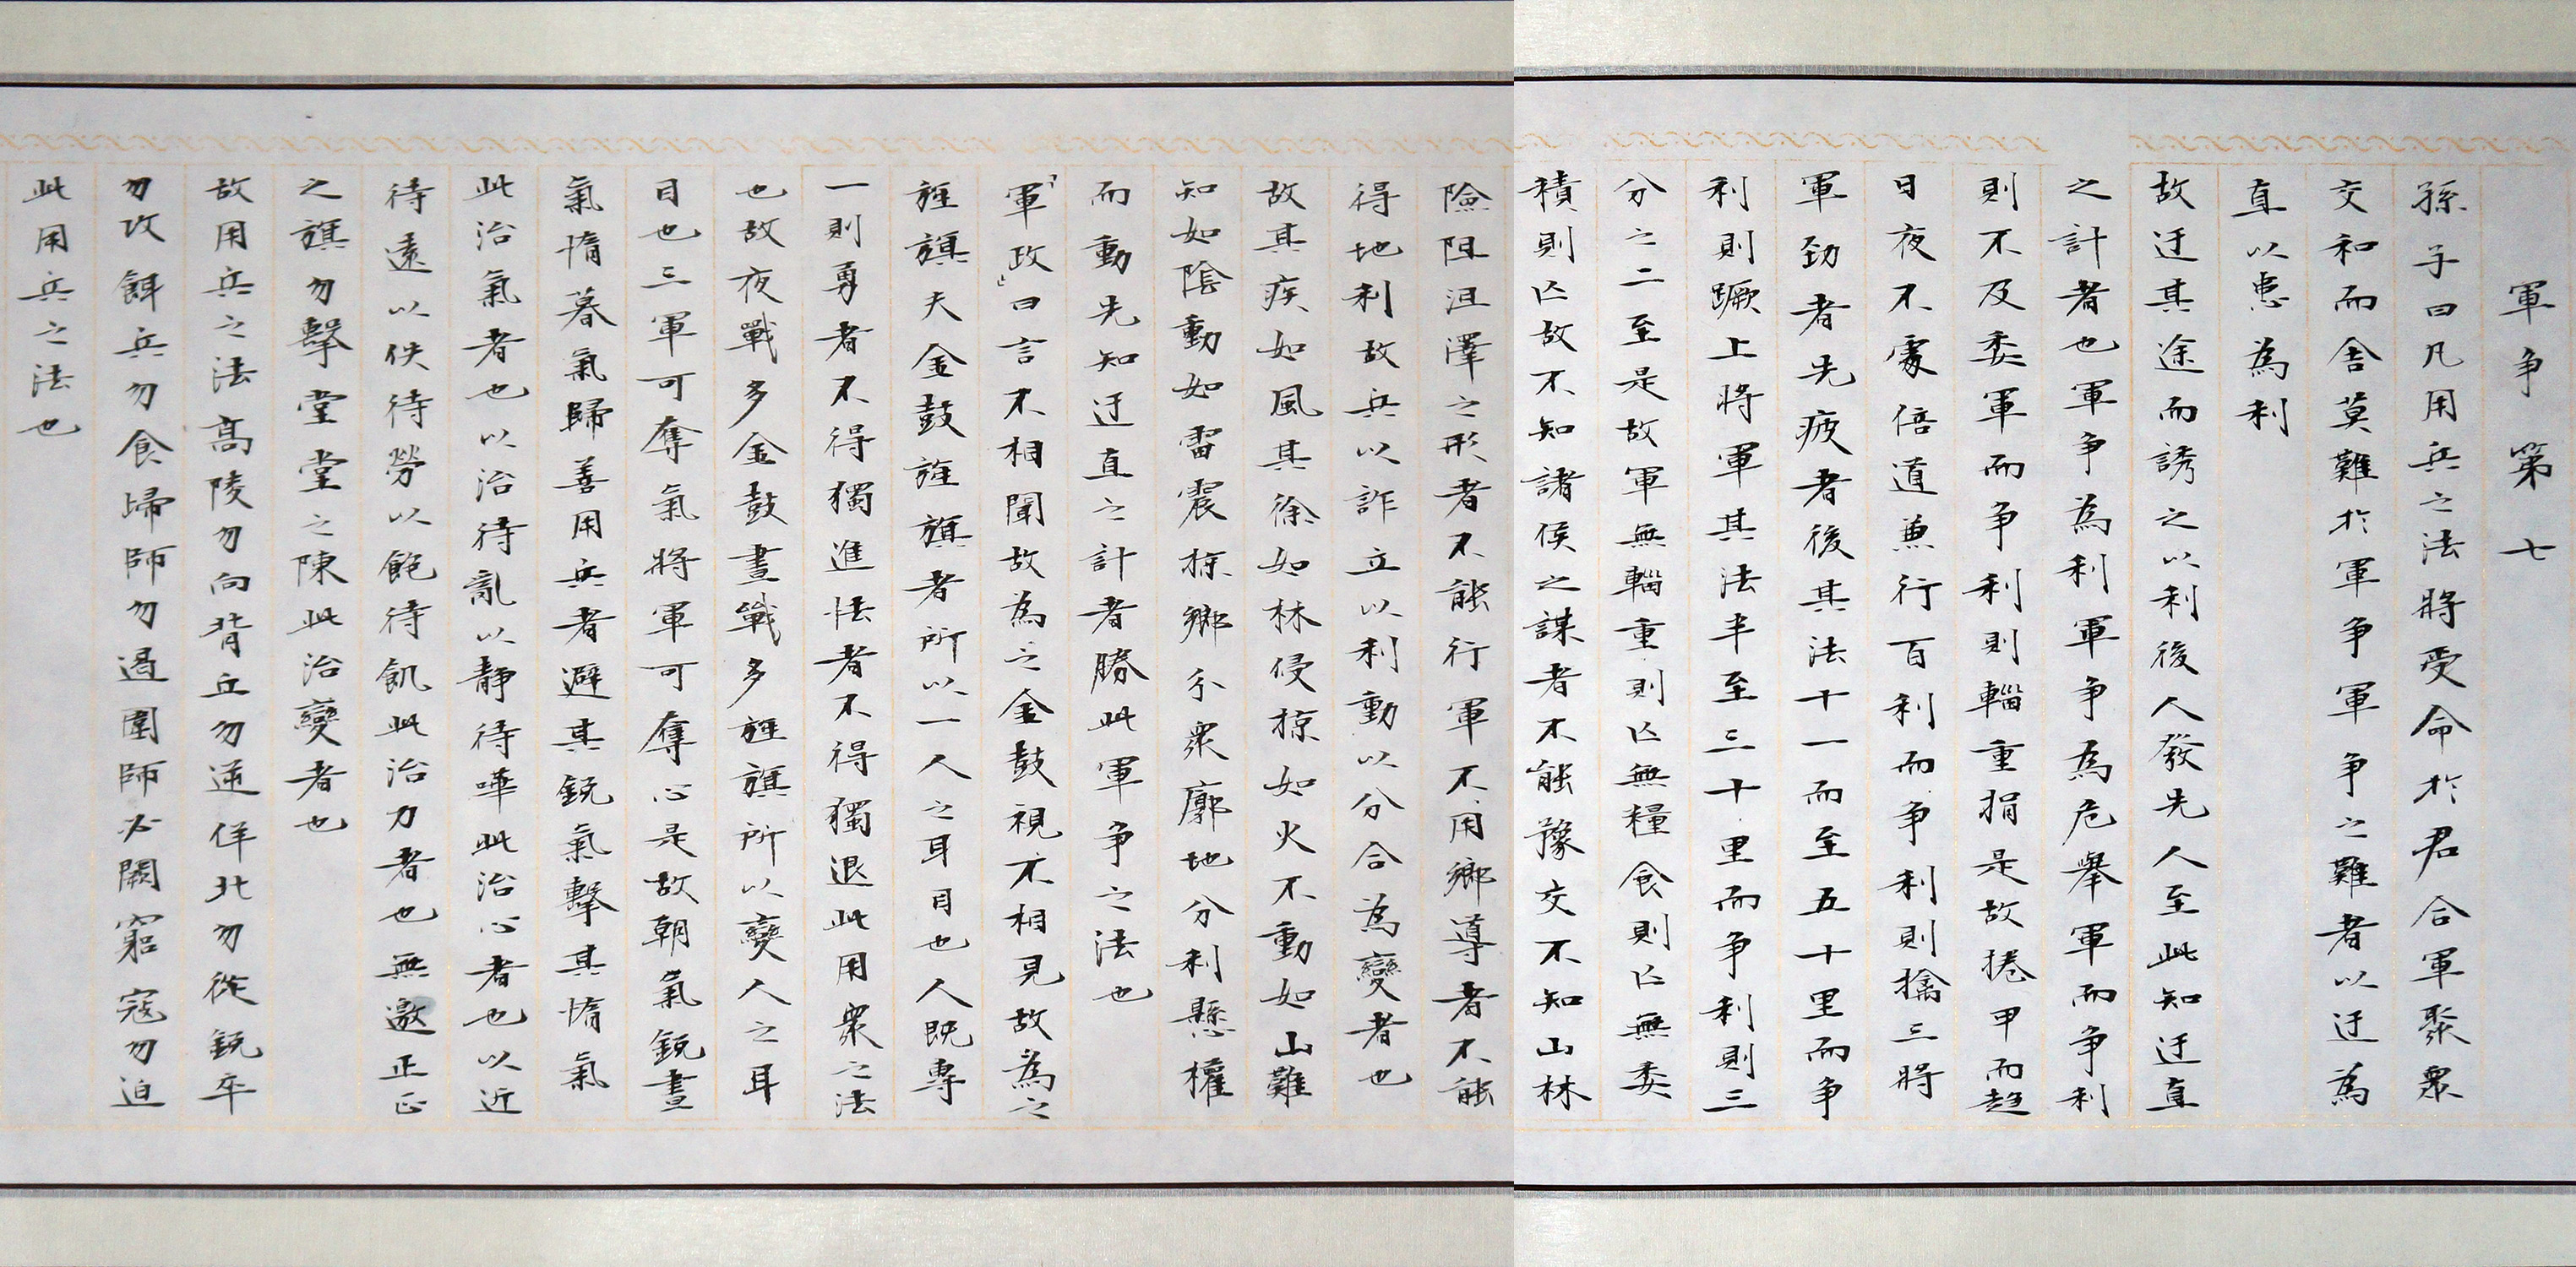 軍争第七
孫子曰凡用兵之法將受命於君合軍聚衆
交和而舎莫難於軍争軍争之難者以迂為
直以患為利
故迂其途而誘之以利後人發先人至此知迂直
之計者也軍争為利軍争為危舉軍而争利
則不及委軍而争利則輜重捐是故捲甲而趨
日夜不處倍道兼行百利而争利則擒三將
軍勁者先疲者後其法十一而至五十里而争
利則蹶上將軍其法半至三十里而争利則三
分之二至是故軍無輜重則亡無糧食則亡無委
積則亡故不知諸侯之謀者不能豫交不知山林
險阻沮澤之形者不能行軍不用鄉導者不能
得地利故兵以詐立以利動以分合為變者也
故其疾如風其徐如林侵掠如火不動如山難
知如陰動如雷震掠鄉分衆廓地分利懸權
而動先知迂直之計者勝此軍争之法也
「軍政」曰言不相聞故為之金鼓視不相見故為之
旌旗夫金鼓旌旗者所以一人之耳目也人既專
一則勇者不得獨進怯者不得獨退此用衆之法
也故夜戰多金鼓晝戰多旌旗所以變人之耳
目也三軍可奪氣將軍可奪心是故朝氣鋭晝
氣惰暮氣歸善用兵者避其鋭氣擊其惰氣
此治氣者也以治待亂以靜待嘩此治心者也以近
待遠以佚待勞以飽待飢此治力者也無邀正正
之旗勿擊堂堂之陳此治變者也
故用兵之法高陵勿向背丘勿逆佯北勿從鋭卒
勿攻餌兵勿食歸師勿遏圍師必闕窮寇勿迫
此用兵之法也